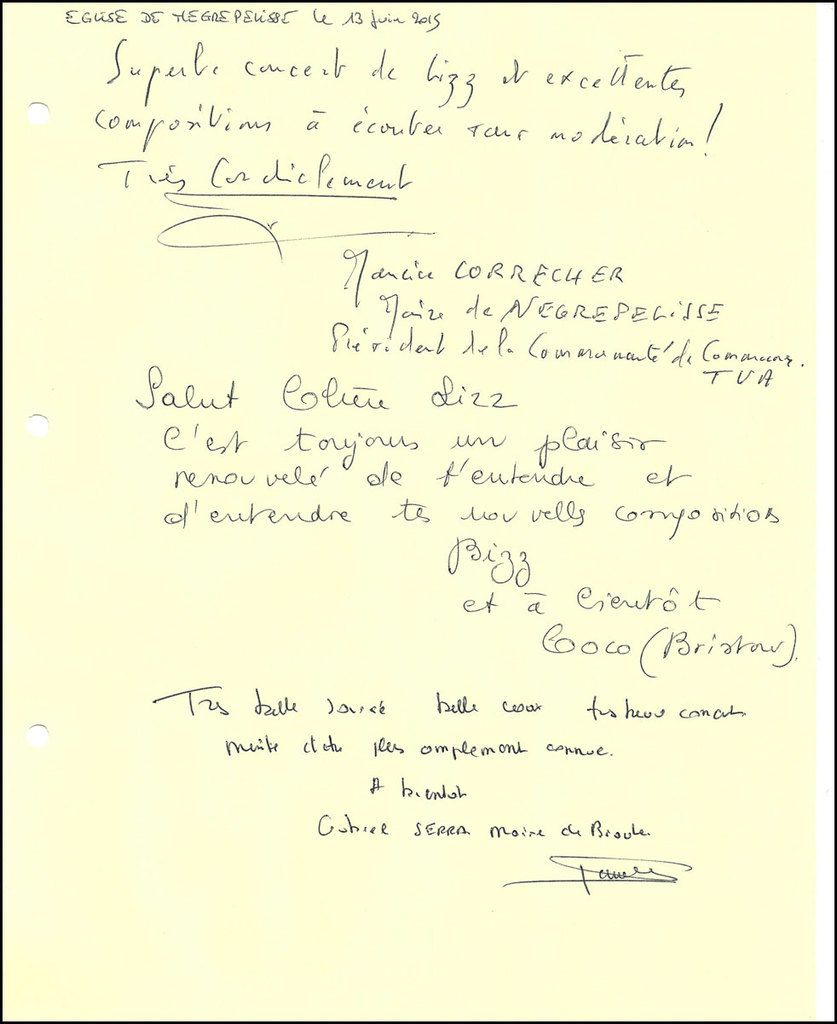 EGLISE DE NEGREPELISSE le 13 Juin 2015
Superbe concert de Lizz et excellentes
compositions à écouter sans modération!
Très Cordialement
Maurice CORRECHER
Maire de NEGREPELISSE
Président de la Communauté de Communes.
TVA
Salut Lizz
C'est toujours un plaisir
renouvelé de t'entendre et
d'entendre tes nouvelles compositions
Bizz
et à bientôt
Coco (Bristow)
Très belle soirée belle voix très beau concert
mérite d'être plus amplement connue.
A bientôt
Gabriel SERRA Maire de Bioule